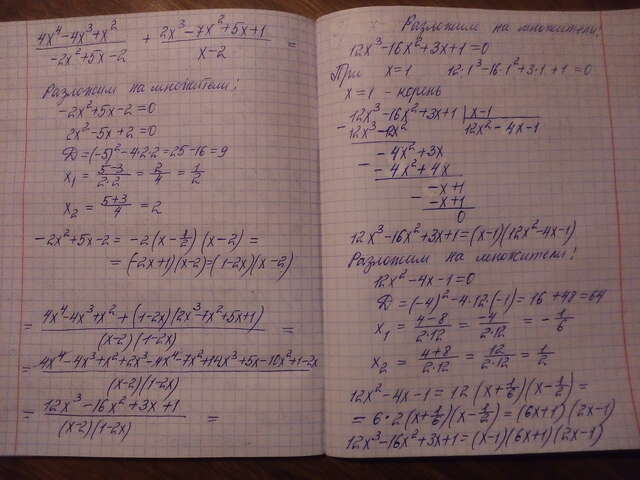 (4x⁴-4x³+x²)/(-2x²+5x-2) + (2x³-7x²+5x+1)/(x-2) =
Разложим на множители:
-2x²+5x-2=0
2x²-5x+2=0
D=(-5)²-4·2·2=25-16=9
x₁ = (5-3)/(2·2) = 2/4 = 1/2
x₂ = (5+3)/4 = 2
-2x²+5x-2 = -2(x-1/2)(x-2) =
= (-2x+1)(x-2)=(1-2x)(x-2)
= (4x⁴-4x³+x²+(1-2x)(2x³-7x²+5x+1))/((x-2)(1-2x)) =
= (4x⁴-4x³+x²+2x³-4x⁴-7x²+14x³+5x-10x²+1-2x)/((x-2)(1-2x))
= (12x³-16x²+3x+1)/((x-2)(1-2x)) =
Разложим на множители:
12x³-16x²+3x+1=0
При x=1 12·1³-16·1²+3·1+1=0
x=1 - корень
12x³-16x²+3x+1 | x-1
- 12x³-12x² 12x²-4x-1
-4x²+3x
- -4x²+4x
-x+1
- -x+1
0
12x³-16x²+3x+1=(x-1)(12x²-4x-1)
Разложим на множители:
12x²-4x-1=0
D=(-4)²-4·12·(-1)=16+48=64
x₁ = (4-8)/(2·12) = -4/(2·12) = -1/6
x₂ = (4+8)/(2·12) = 12/(2·12) = 1/2
12x²-4x-1 = 12(x+1/6)(x-1/2) =
= 6·2(x+1/6)(x-1/2)=(6x+1)(2x-1)
12x³-16x²+3x+1=(x-1)(6x+1)(2x-1)